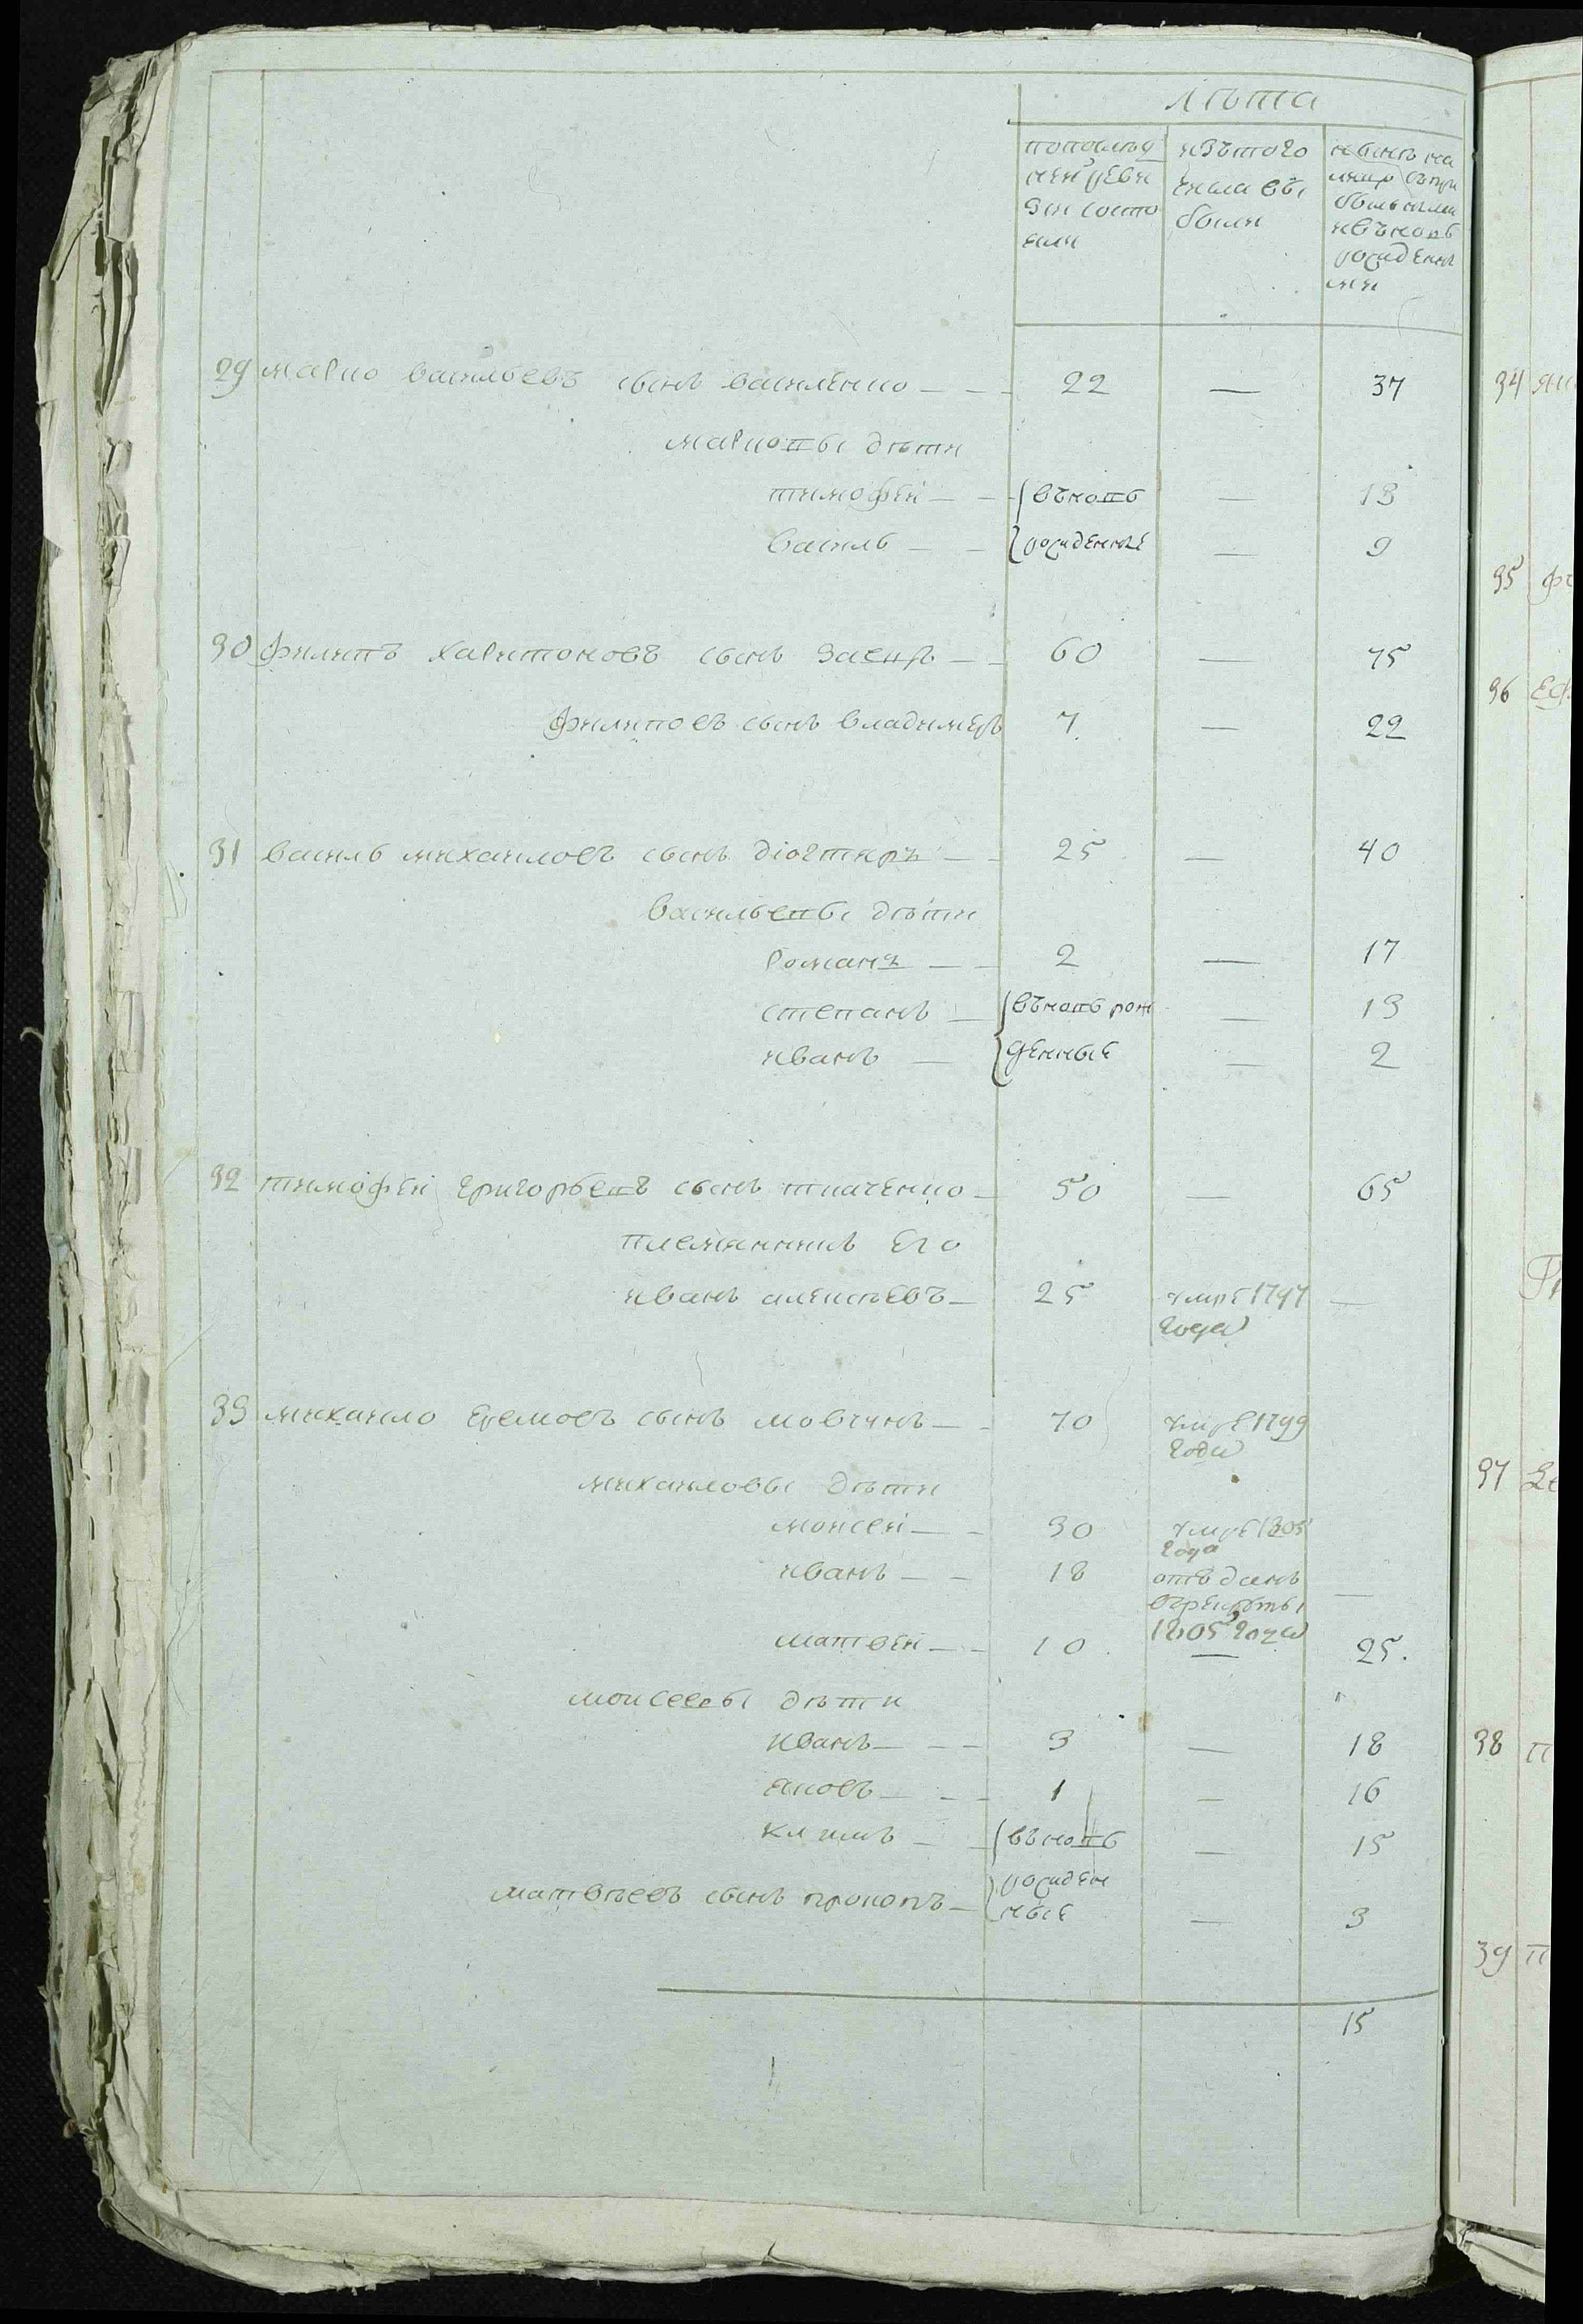 лѣта
попослѣд изътого нынѣ на
ней реви числа вы лицо съпри
зіи состо были былыми
яли ивъновь
рожденны
ми
29 марко васильевъ сынъ василенко — — 22 — 37
марковы дѣти
тимофей — — въновь — 13
василь — — рожденные — 9
30 филипъ харитоновъ сынъ заецъ — — 60 — 75
филиповъ сынъ владимеръ 7 — 22
31 василь михайловъ сынъ діогтяръ — — 25 — 40
васильевы дѣти
романъ — — 2 — 17
степанъ — въновь рож — 13
иванъ — денные — 2
32 тимофей григорьевъ сынъ ткаченко — 50 — 65
племянникъ его
иванъ алексѣевъ — 25 умре 1797 —
года
33 михайло еремовъ сынъ мовчанъ — — 70 умре 1799
года
михайловы дѣти
моисей — — 30 умре 1805
года
иванъ — — 18 отъданъ —
врекруты
1805 года
матвей — — 10 — 25.
моисеевы дѣти
иванъ — — — 3 — 18
яковъ — — — 1 — 16
климъ — — въновь — 15
рожден
матвѣевъ сынъ прокопъ — ные — 3
15
34
35
36
37
38 П
39 П